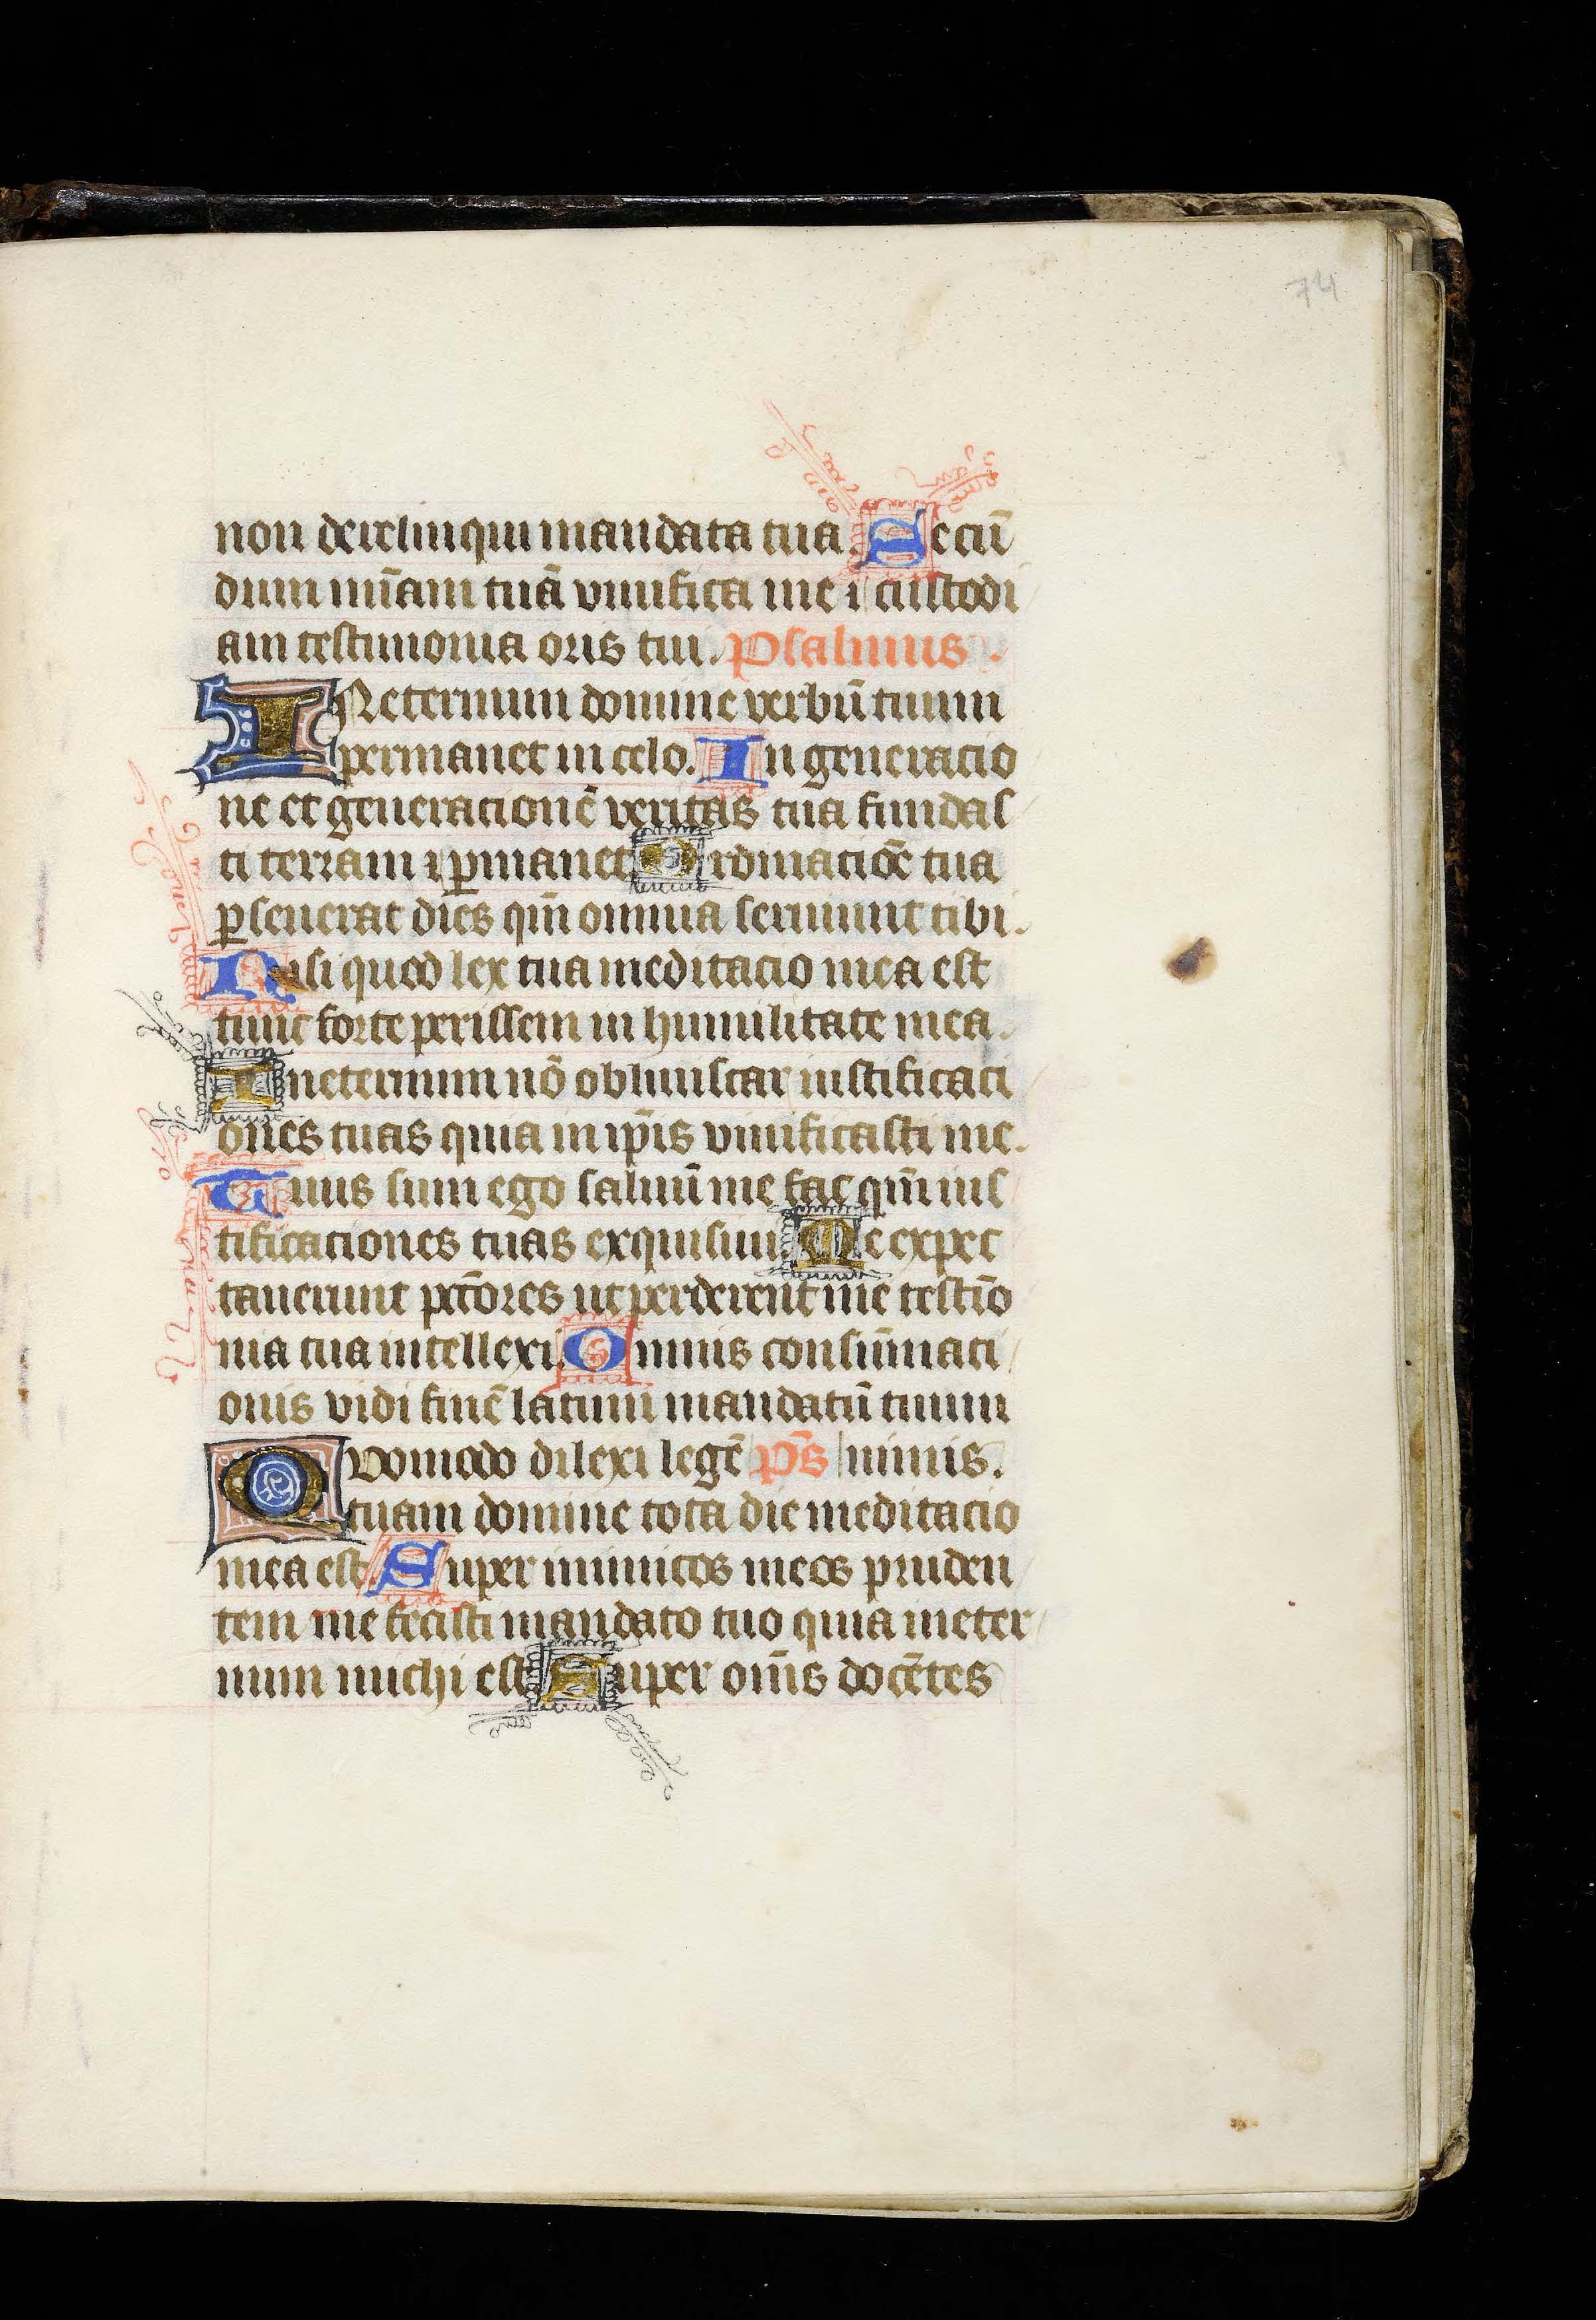 74
non derelinqui mandata tua. Secū
dum mīam tuā viuifica me ⁊ custodi
am testimonia oris tui. Psalmus.
INeternum domine verbū tuum
permanet in celo. In generacio
ne et generacionē veritas tua fundas
ti terram ⁊ ꝑmanet Ordinaciōe tua
ꝑseuerat dies qm̄ omnia seruiunt tibi.
Nisi quod lex tua meditacio mea est
tunc forte perissem in humilitate mea.
Ineternum nō obliuiscar iustificaci
ones tuas quia in ip̄is viuificasti me.
Tuus sum ego saluū me fac qm̄ ius
tificaciones tuas exquisiui Me expec
tauerunt pctōres ut perderent me testīo
nia tua intellexi. Omnis consūmati
onis vidi finē latum mandatū tuum
QVomodo dilexi legē p̄s nimis.
tuam domine tota die meditacio
mea est. Super inimicos meos pruden
tem me fecisti mandato tuo quia ineter
num michi est Super om̄s docētes